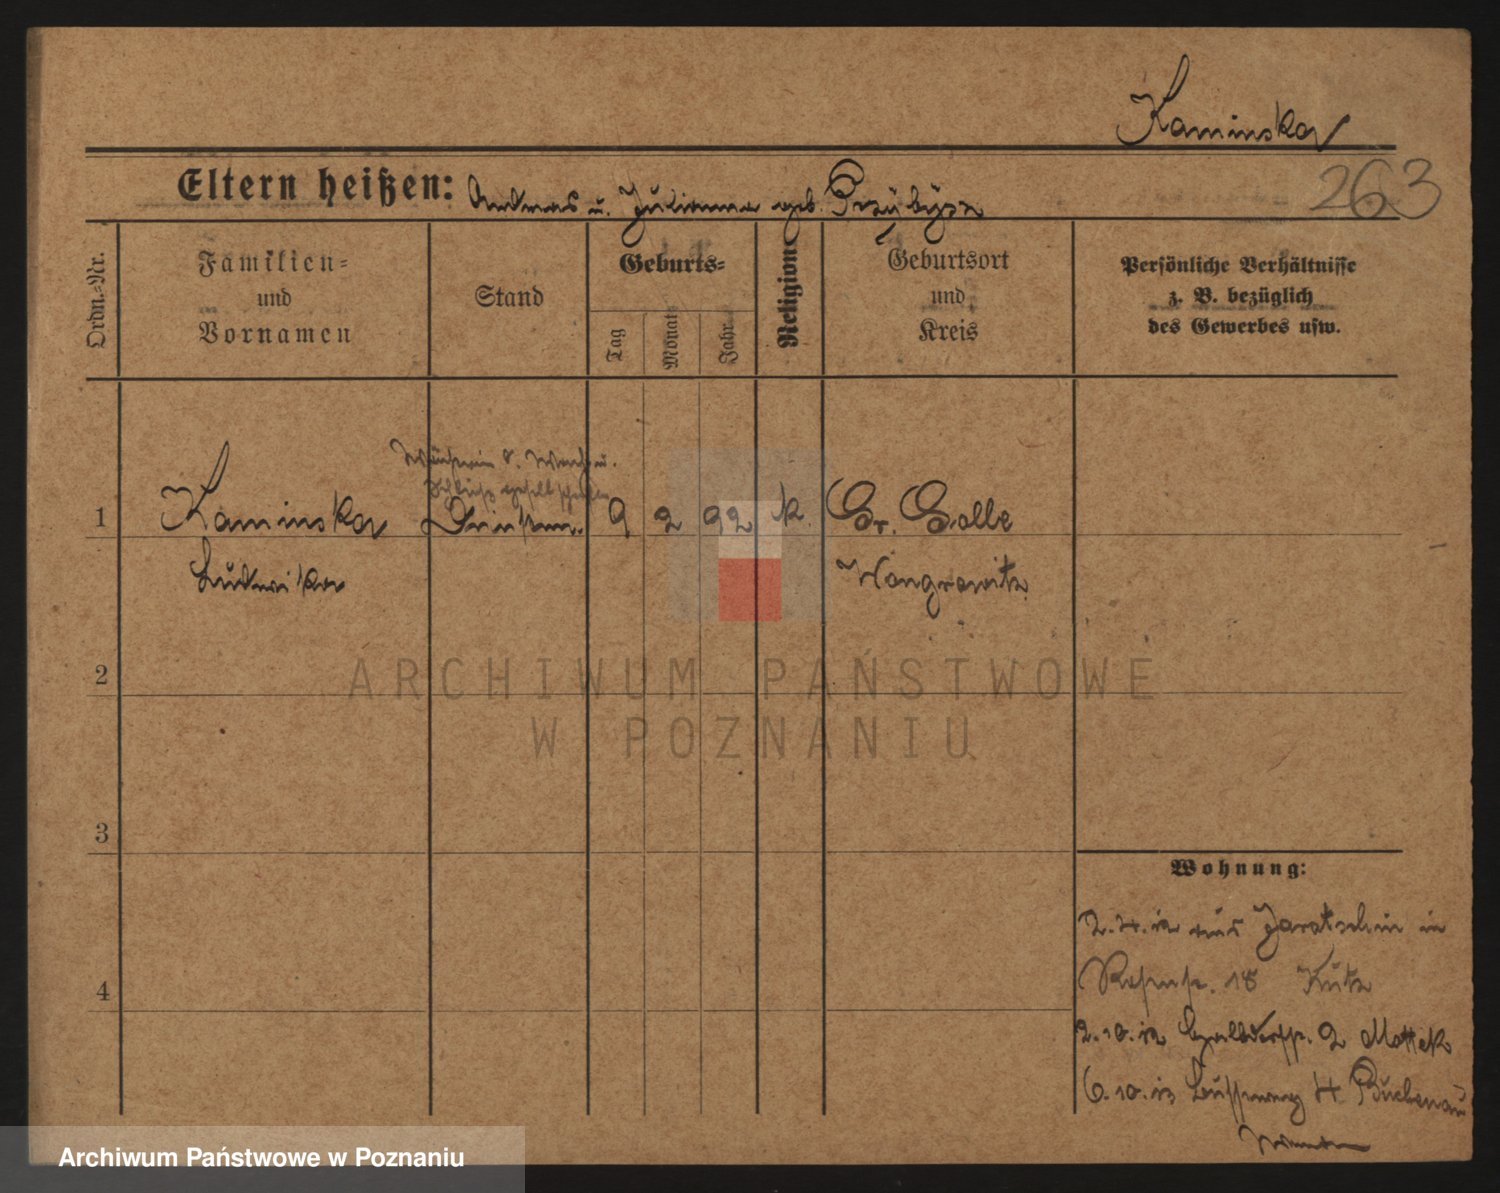 Kaminska
Eltern heißen: Andreas u. Julianna geb. Przybysz
263
Ordn.-Nr.
Familien-
und
Vornamen
Stand
Geburts-
Tag
Monat
Jahr
Religion
Geburtsort
und
Kreis
Persönliche Verhältnisse
z. B. bezüglich
des Gewerbes usw.
1
Kaminska
Ludwika
9 2 92 k.
Gr. Golle
Wongrowitz
2
3
4
Wohnung:
2.4.12 aus Jarotschin in
18 Kutz
2.10.12 2 Mottek
6.10.13 4 Buchenau
ARCHIWUM PAŃSTWOWE
W POZNANIU
Archiwum Państwowe w Poznaniu